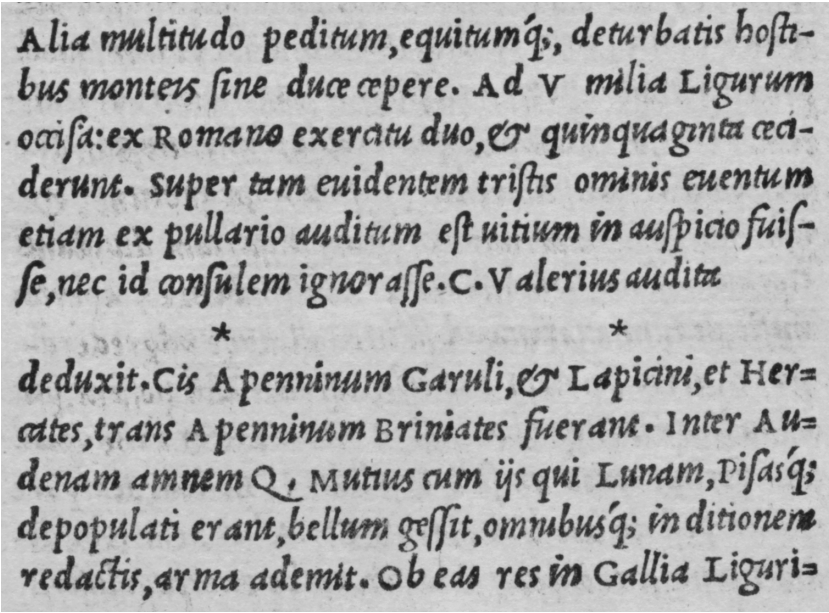 Alia multitudo peditum, equitumq́;, deturbatis hosti-
bus monteis sine duce cepere. Ad V milia Ligurum
occisa: ex Romano exercitu duo, & quinquaginta ceci-
derunt. Super tam euidentem tristis ominis euentum
etiam ex pullario auditum est uitium in auspicio fuis-
se, nec id consulem ignorasse. C. Valerius audita
* *
deduxit. Cis Apenninum Garuli, & Lapicini, et Her=
cates, trans Apenninum Briniates fuerant. Inter Au=
denam amnem Q. Mutius cum ijs qui Lunam, Pisasq́;
depopulati erant, bellum gessit, omnibusq́; in ditionem
redactis, arma ademit. Ob eas res in Gallia Liguri=